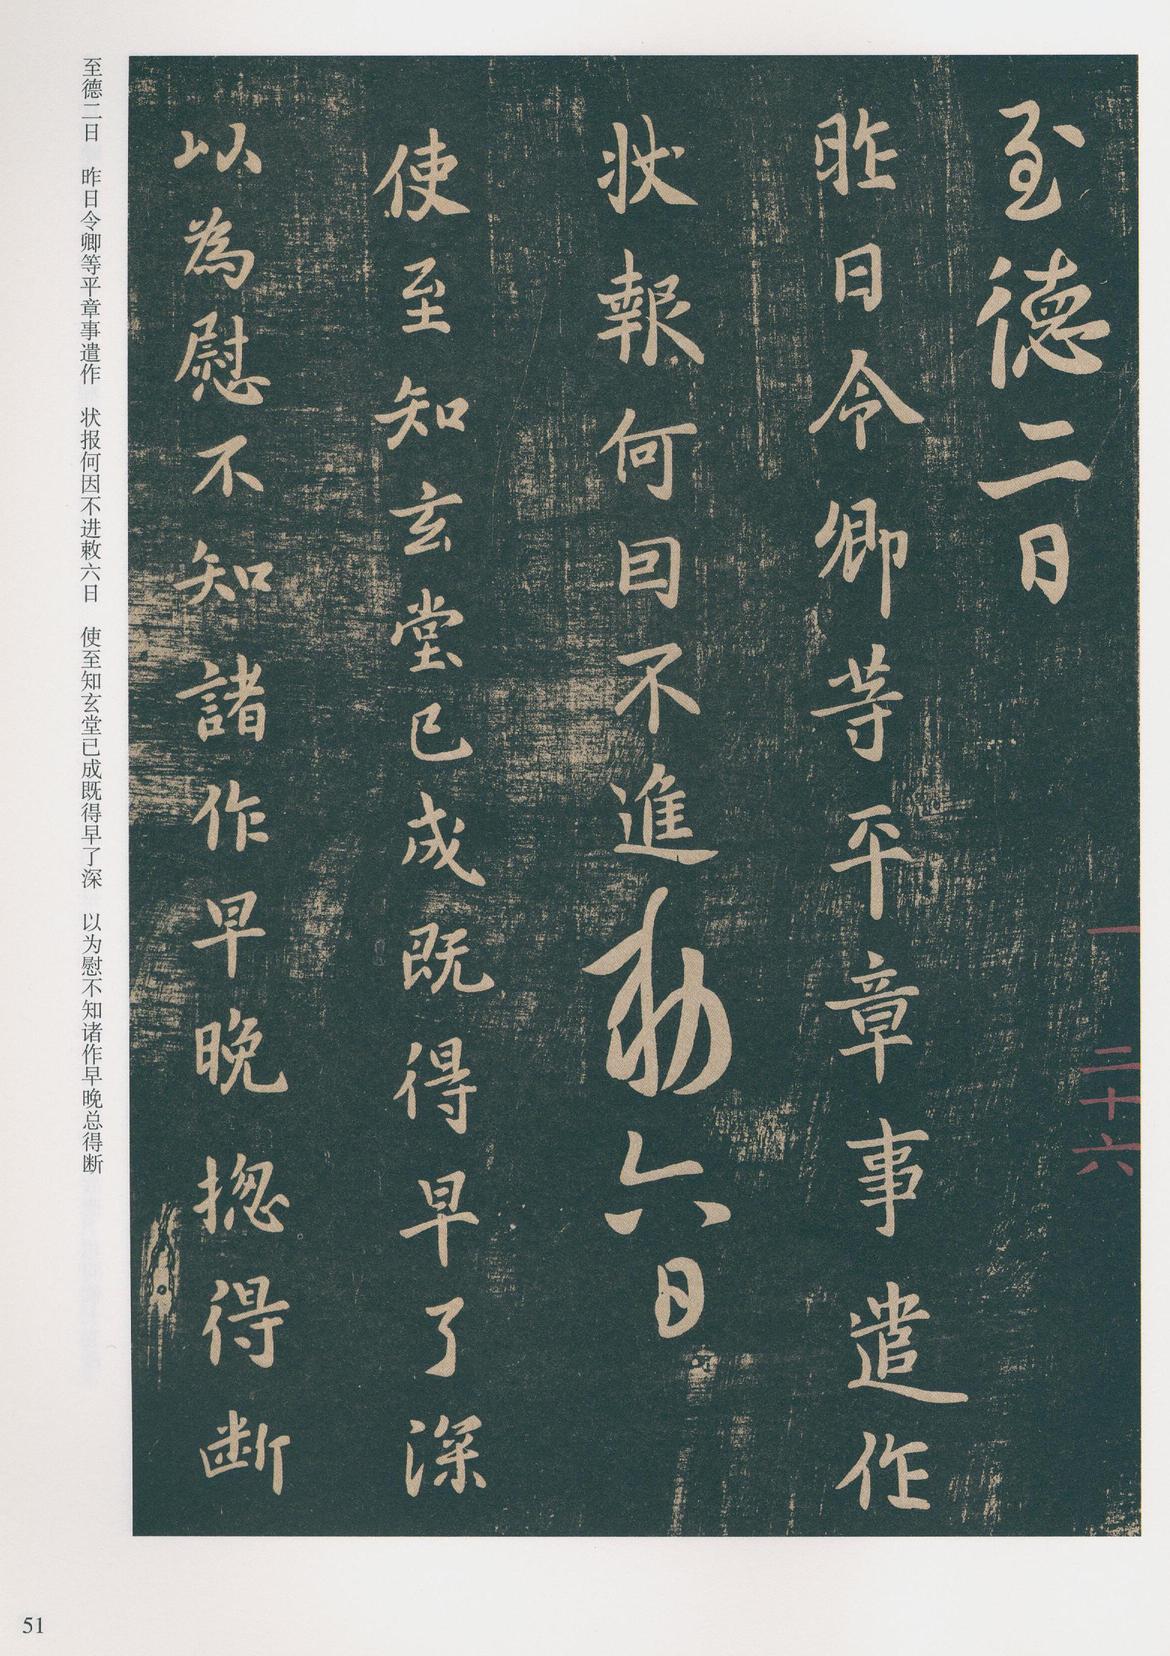 至德二日
昨日令卿等平章事遣作
狀報何因不進敕六日
使至知玄堂已成既得早了深
以為慰不知諸作早晚揔得断
一 二十六
至德二日 昨日令卿等平章事遣作 状报何因不进敕六日 使至知玄堂已成既得早了深 以为慰不知诸作早晚总得断
51